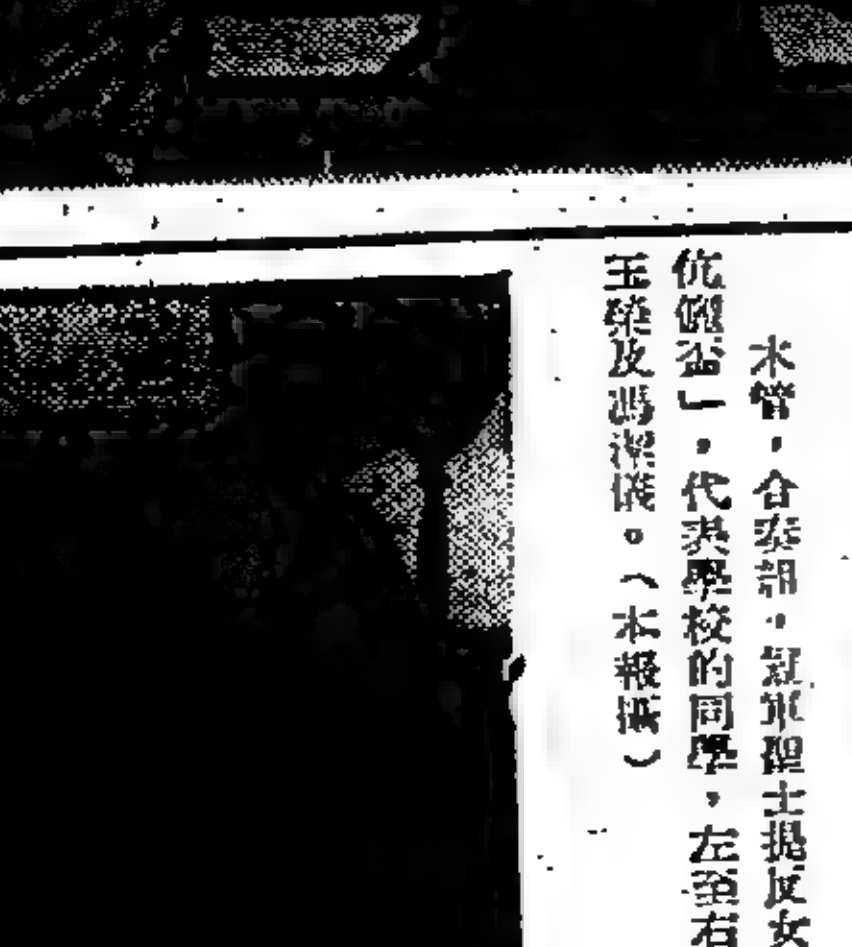 木管,合奏組。冠軍聖士提反女
伉儷盃」,代表學校的同學,左至右
玉榮及馮潔儀。(本報攝)